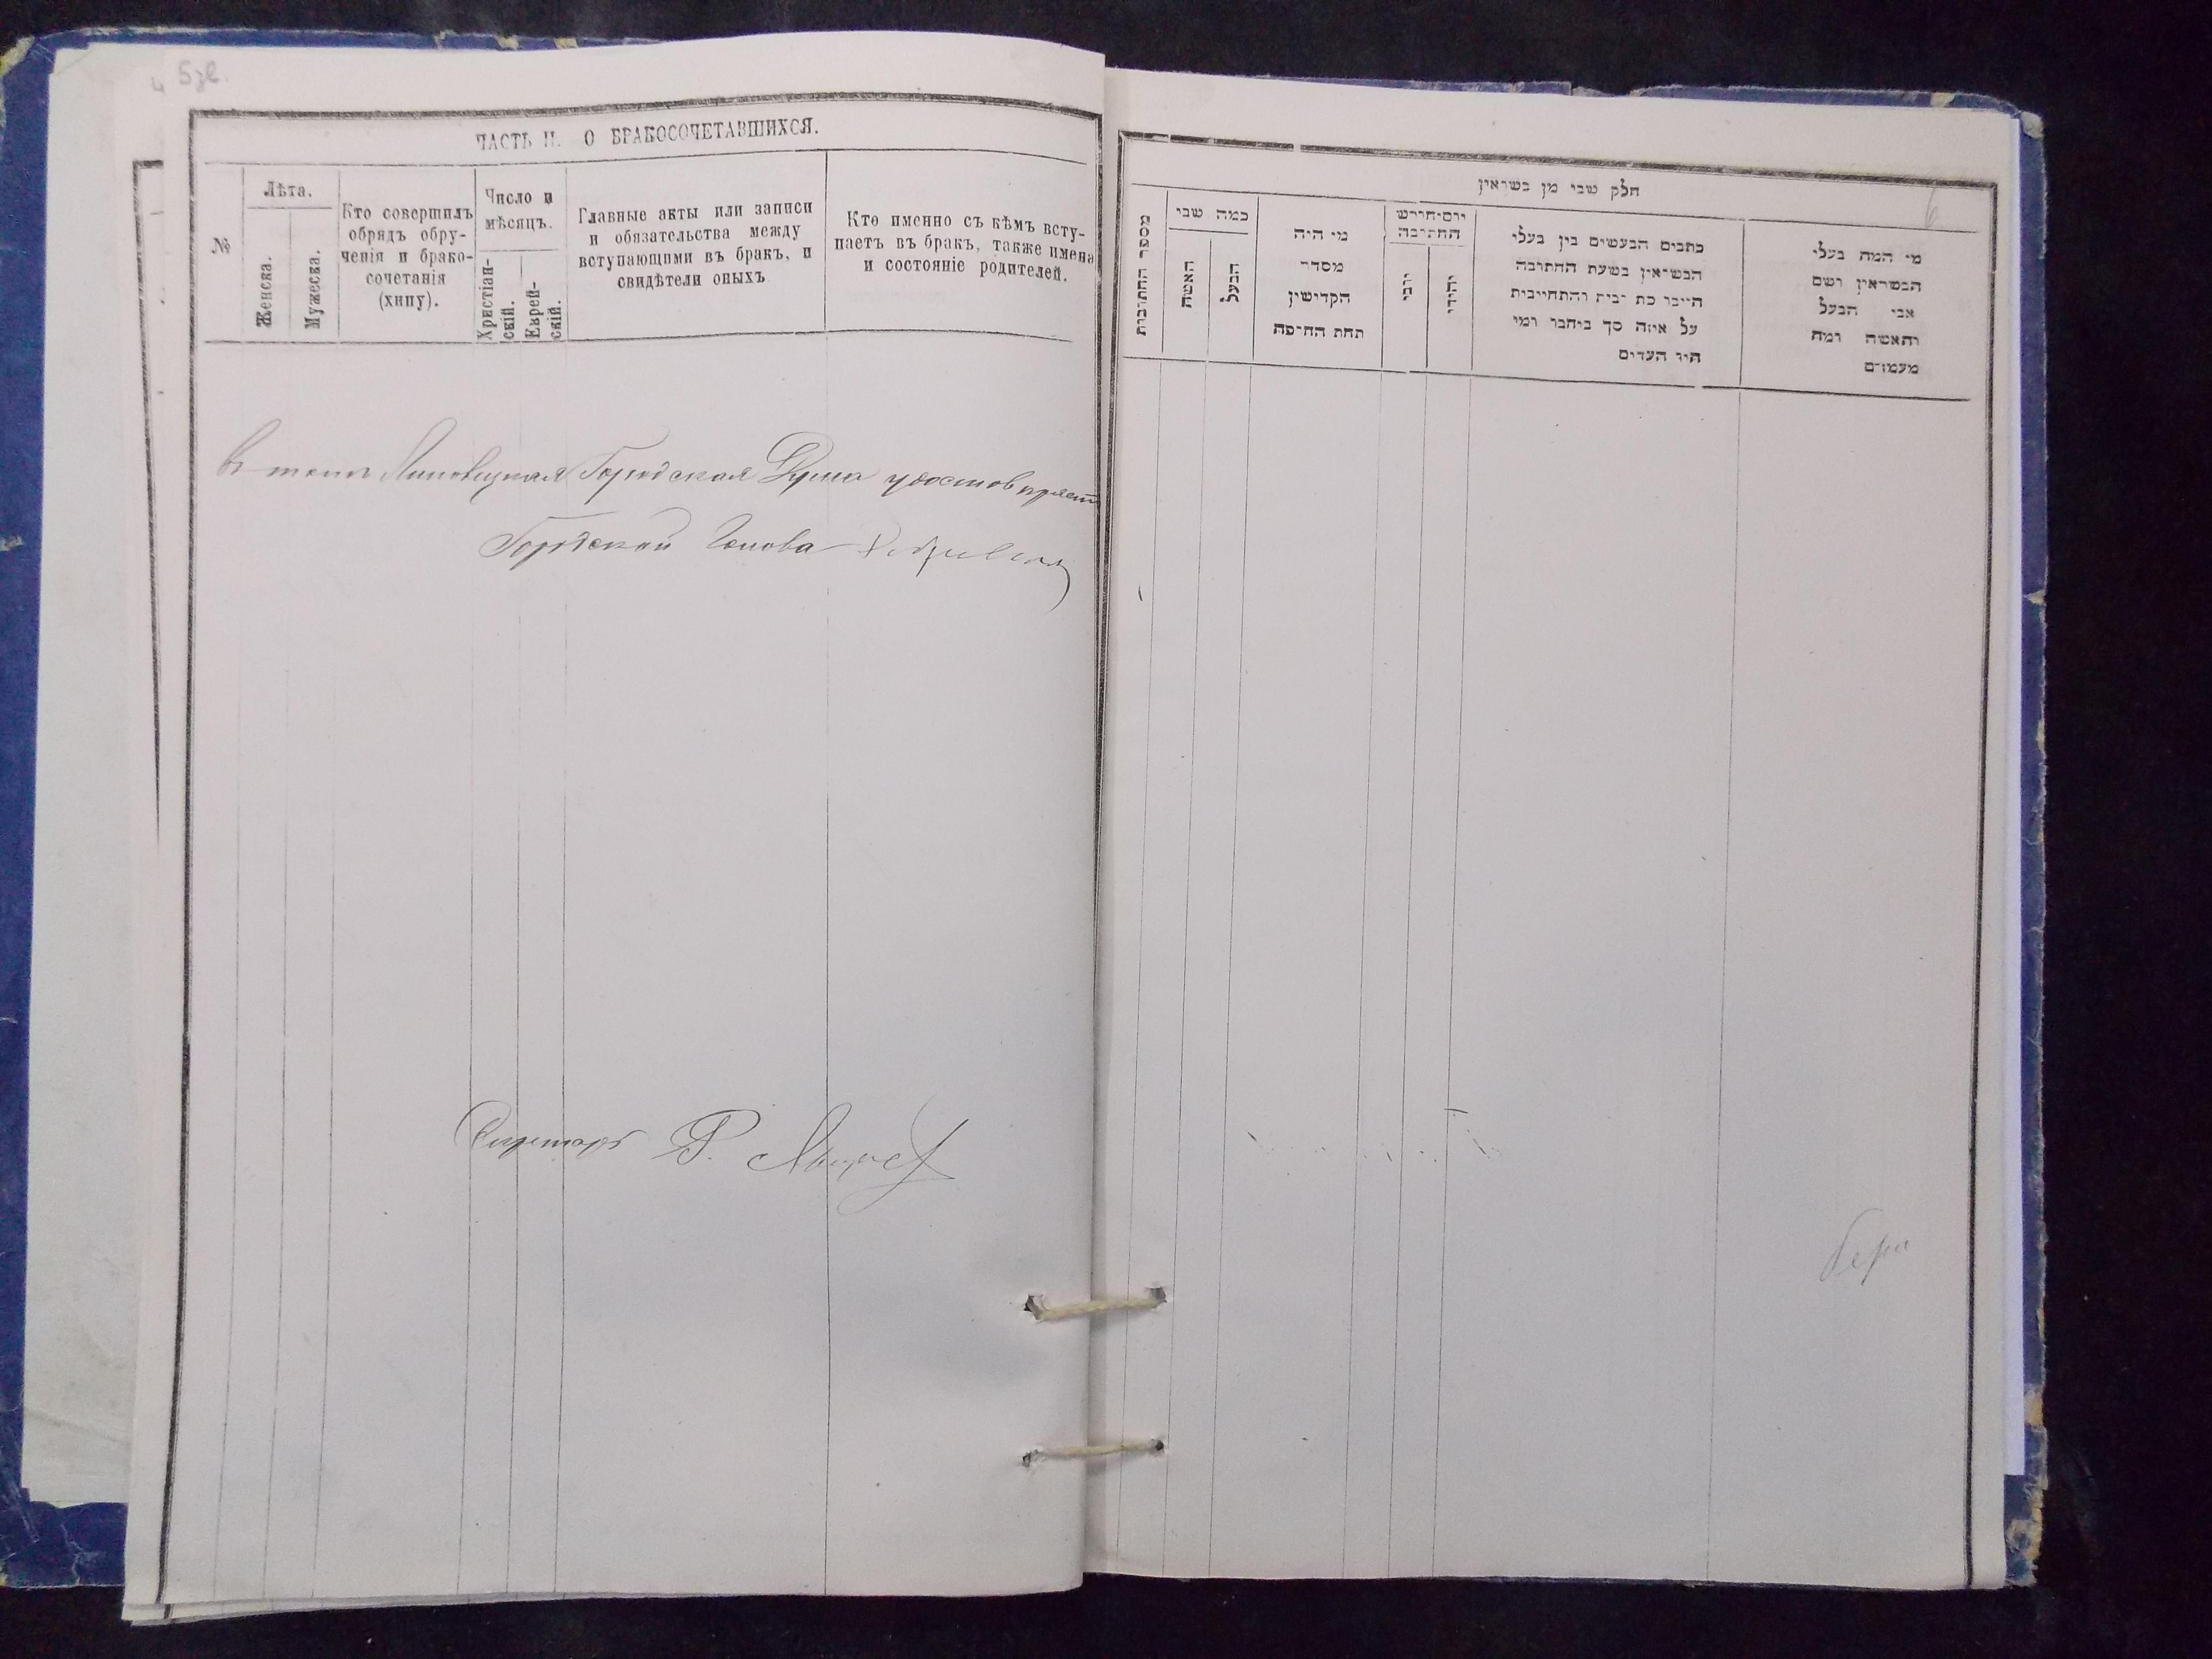 5
ЧАСТЬ II. О БРАКОСОЧЕТАВШИХСЯ.
№
Лѣта.
Женска.
Мужеска.
Кто совершилъ
обрядъ обру-
ченія и брако-
сочетанія
(хипу).
Число и
мѣсяцъ.
Христіан-
скій.
Еврей-
скій.
Главные акты или записи
и обязательства между
вступающими въ бракъ, и
свидѣтели оныхъ
Кто именно съ кѣмъ всту-
паетъ въ бракъ, также имена
и состояніе родителей.
въ томъ Липовецкая Городская Дума удостовѣряетъ
Городской Голова
Секретарь Р.
6
חלק שני מן נשואין
מספר החתונות
כמה שני
האשה
הבעל
מי היה
מסדר
הקדישין
תחת החיפה
יום וחודש
החתונה
יוני
יהודי
כתבים הנעשים בין בעלי
הנשואין בשעת החתונה
היינו כת ובית והתחייבות
על איזה סך ביחבר ומי
היו העדים
מי המה בעלי
הנשואין ושם
אבי הבעל
והאשה ומה
מעמדם